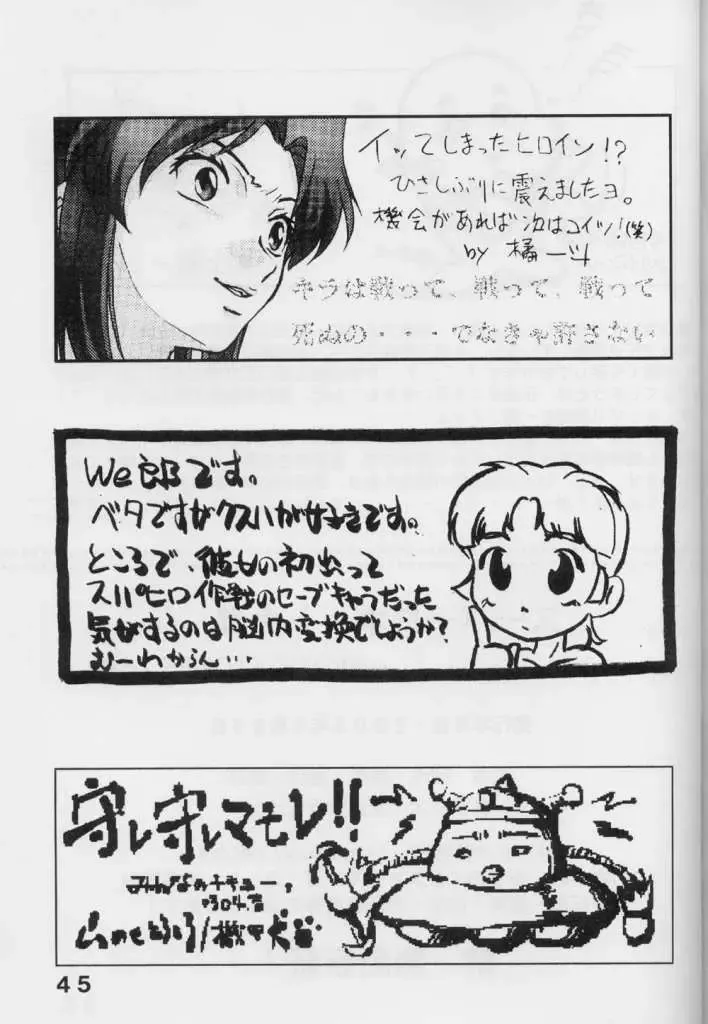 イッてしまったヒロイン!?
ひさしぶりに震えましたヨ。
機会があれば次はコイツ!(笑)
by 橘一斗
キラは戦って、戦って、戦って
死ぬの・・・でなきゃ許さない
We郎です。
ベタですがクスハが好きです。
ところで、彼女の初出って
スパヒロ作戦のセーブキャラだった
気がするのは脳内変換でしょうか?
むーわからん…
守レ守レマモレ!!
みんなのチキュー。